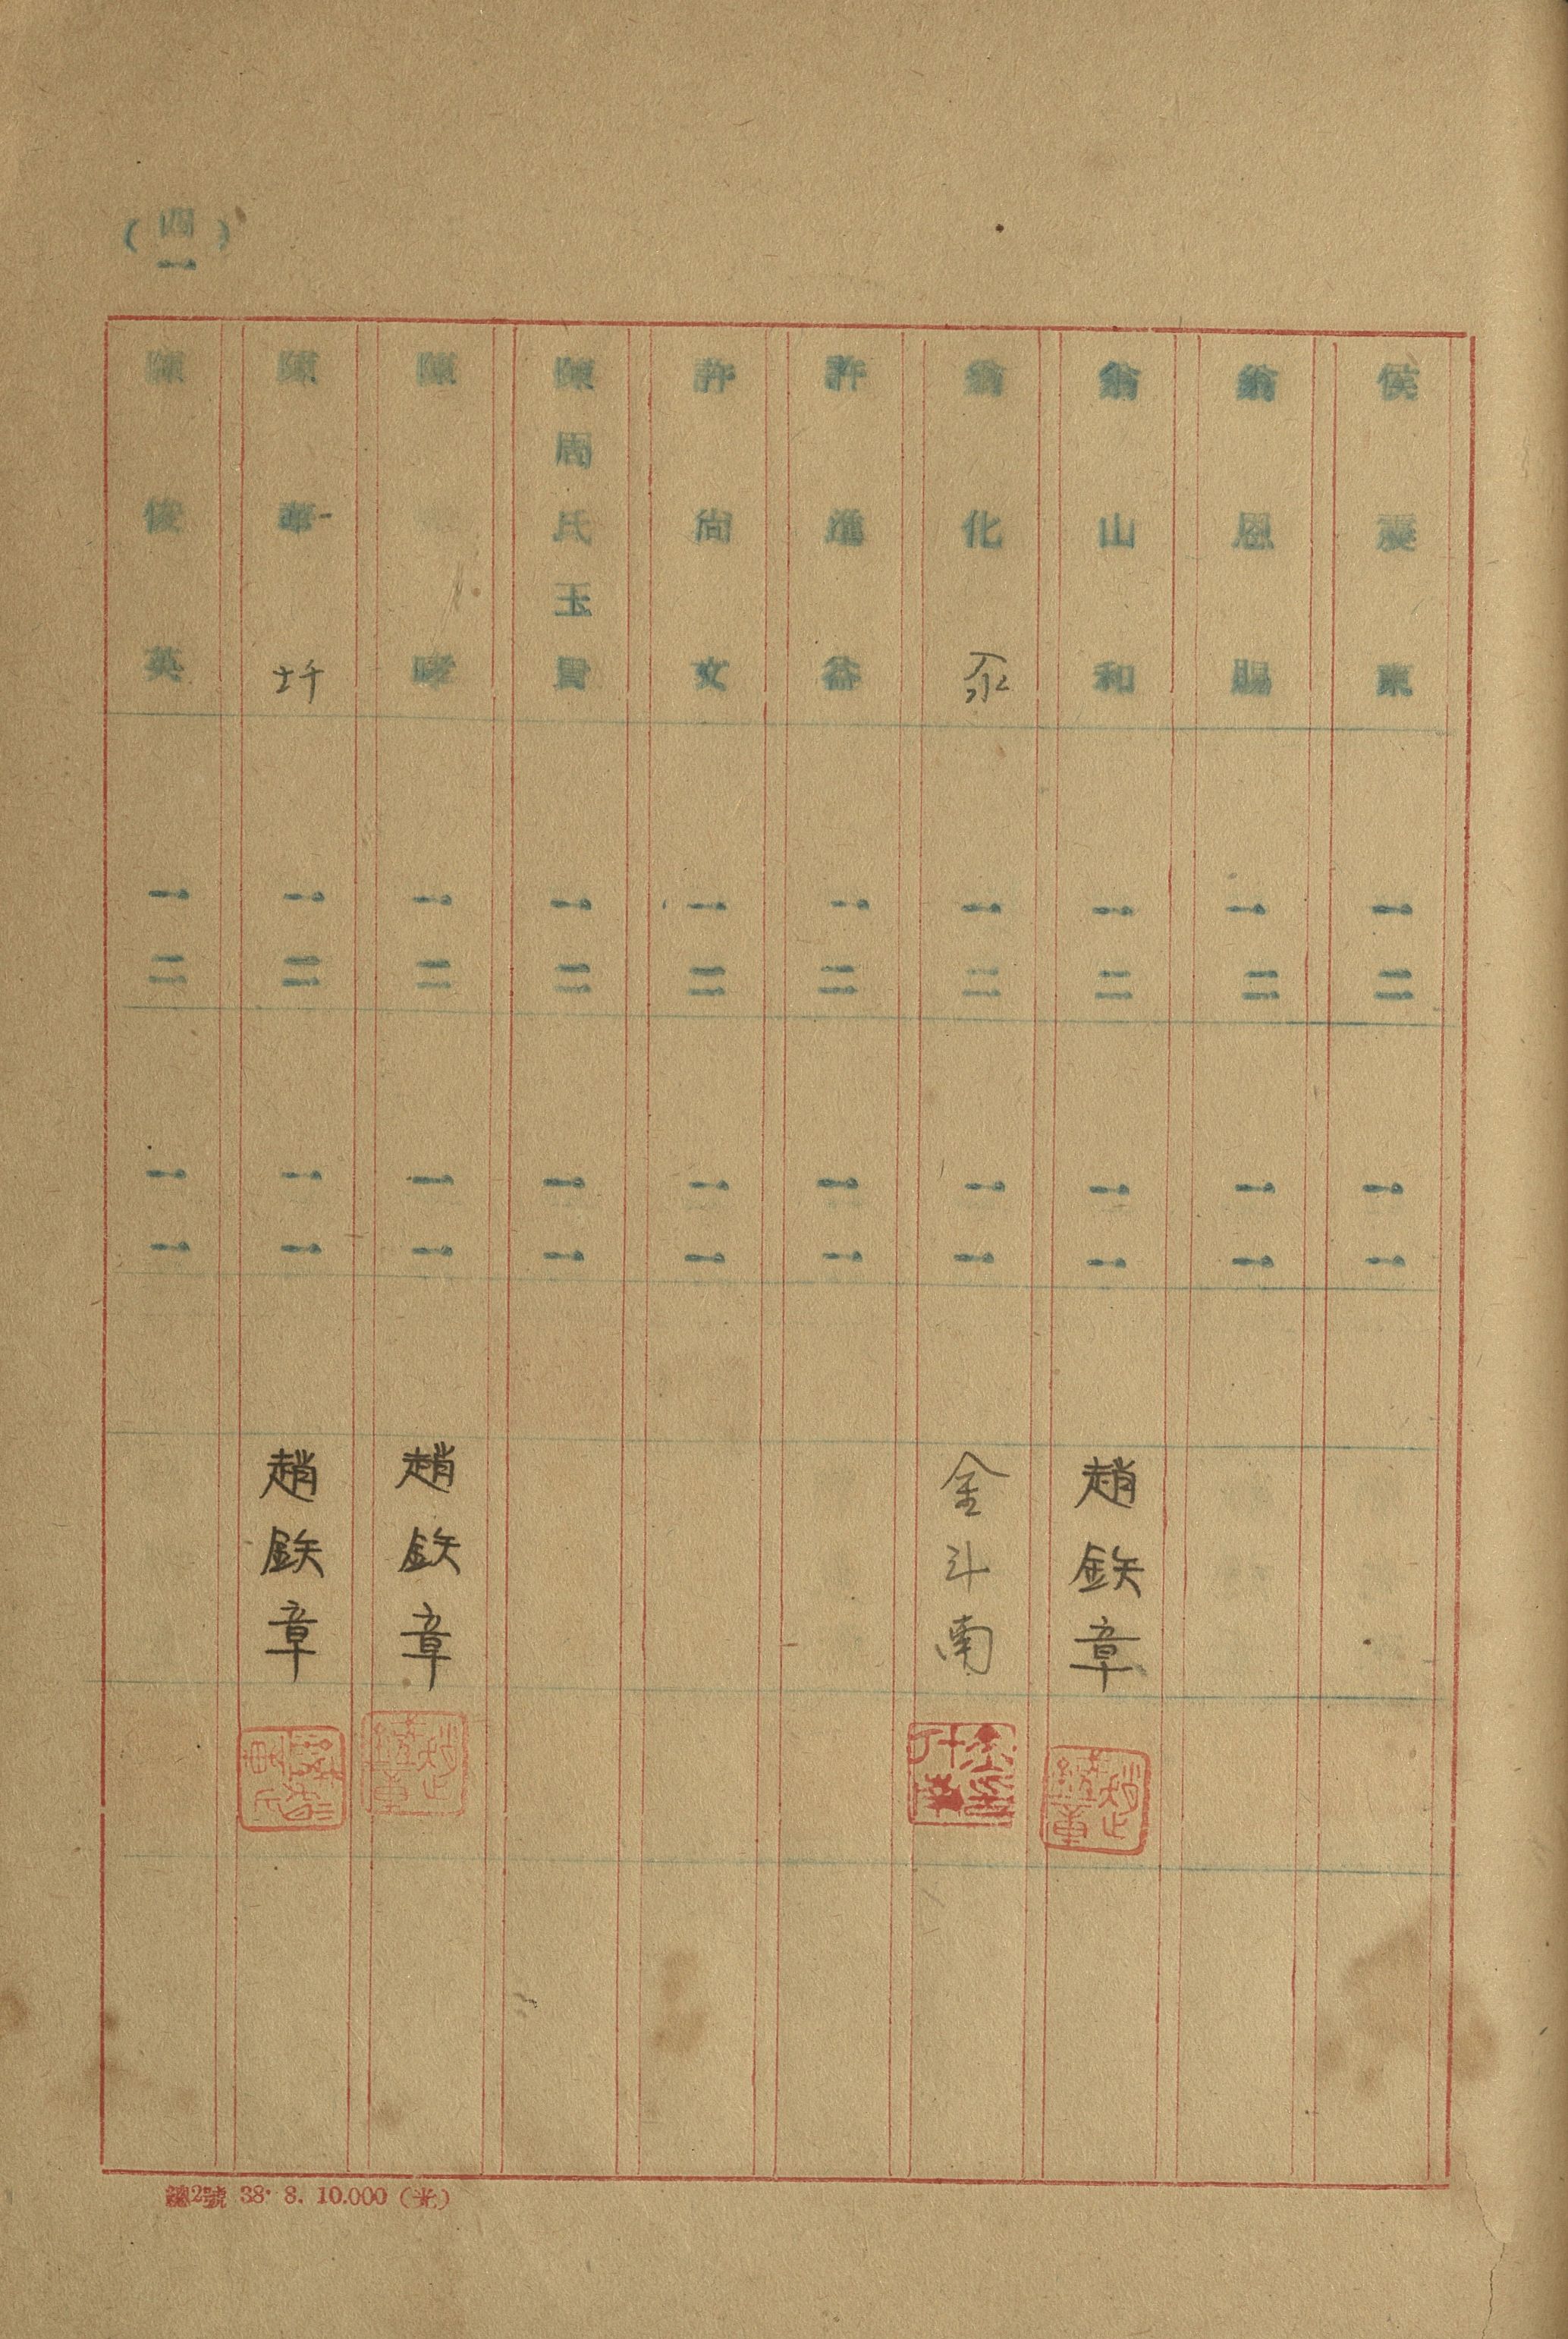 侯東 一二 一一
翁恩賜 一二 一一
翁山和 一二 一一 趙鉄章
翁化 一二 一一 金斗南
許進益 一二 一一
許尚文 一二 一一
陳周氏玉貴 一二 一一
陳哮 一二 一一 趙鉄章
陳華圲 一二 一一 趙鉄章
陳俊英 一二 一一
(四一)
總2號 38. 8. 10.000 (光)